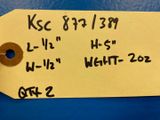 KSC 877/389
L-1/2" H-5"
W-1/2" WGHT-2oz
QTY 2